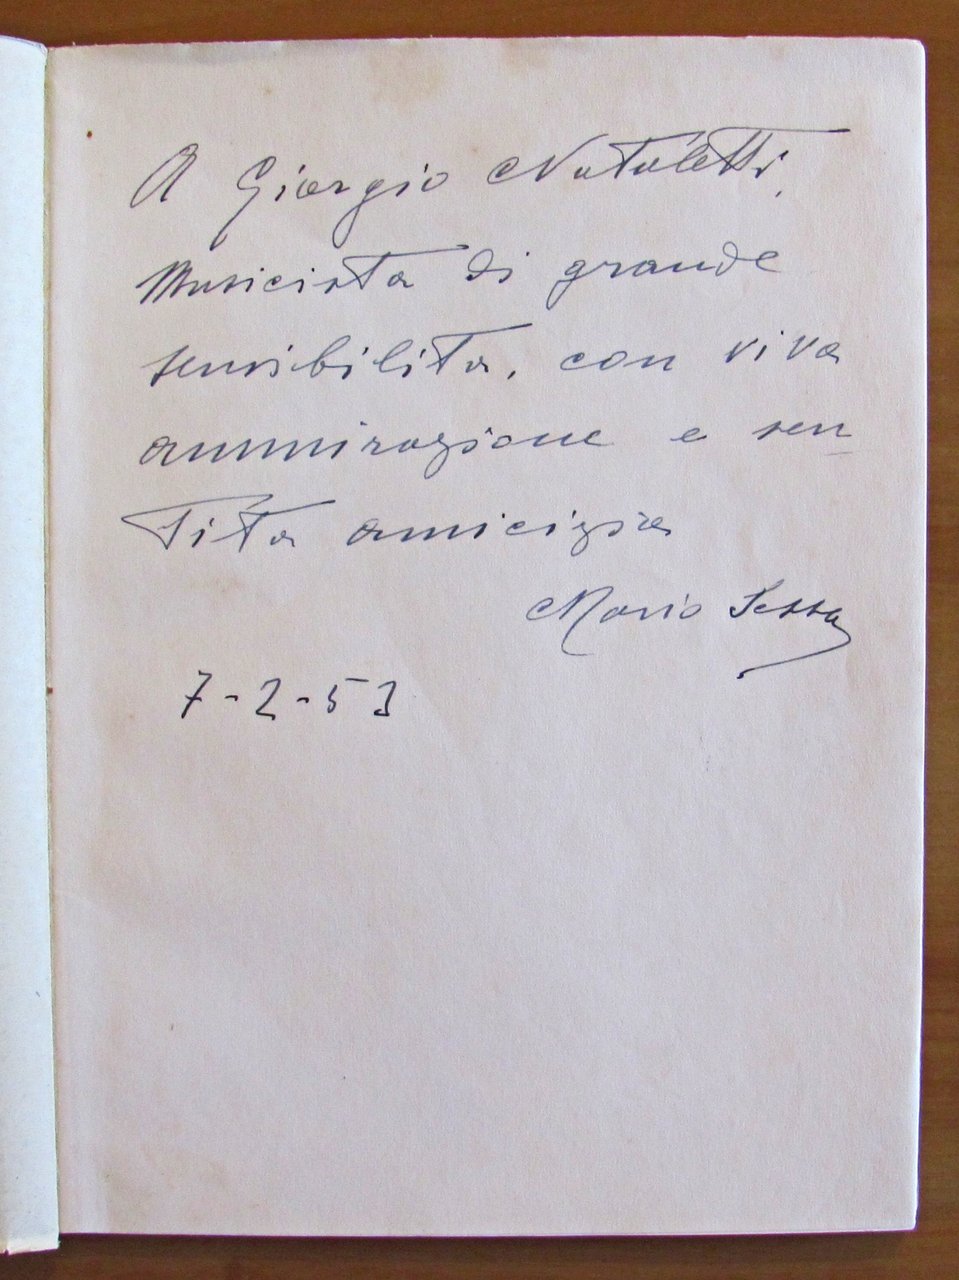 A Giorgio Nataletti,
Musicista di grande
sensibilità, con viva
ammirazione e sen
tita amicizia
Mario Sessa
7-2-53